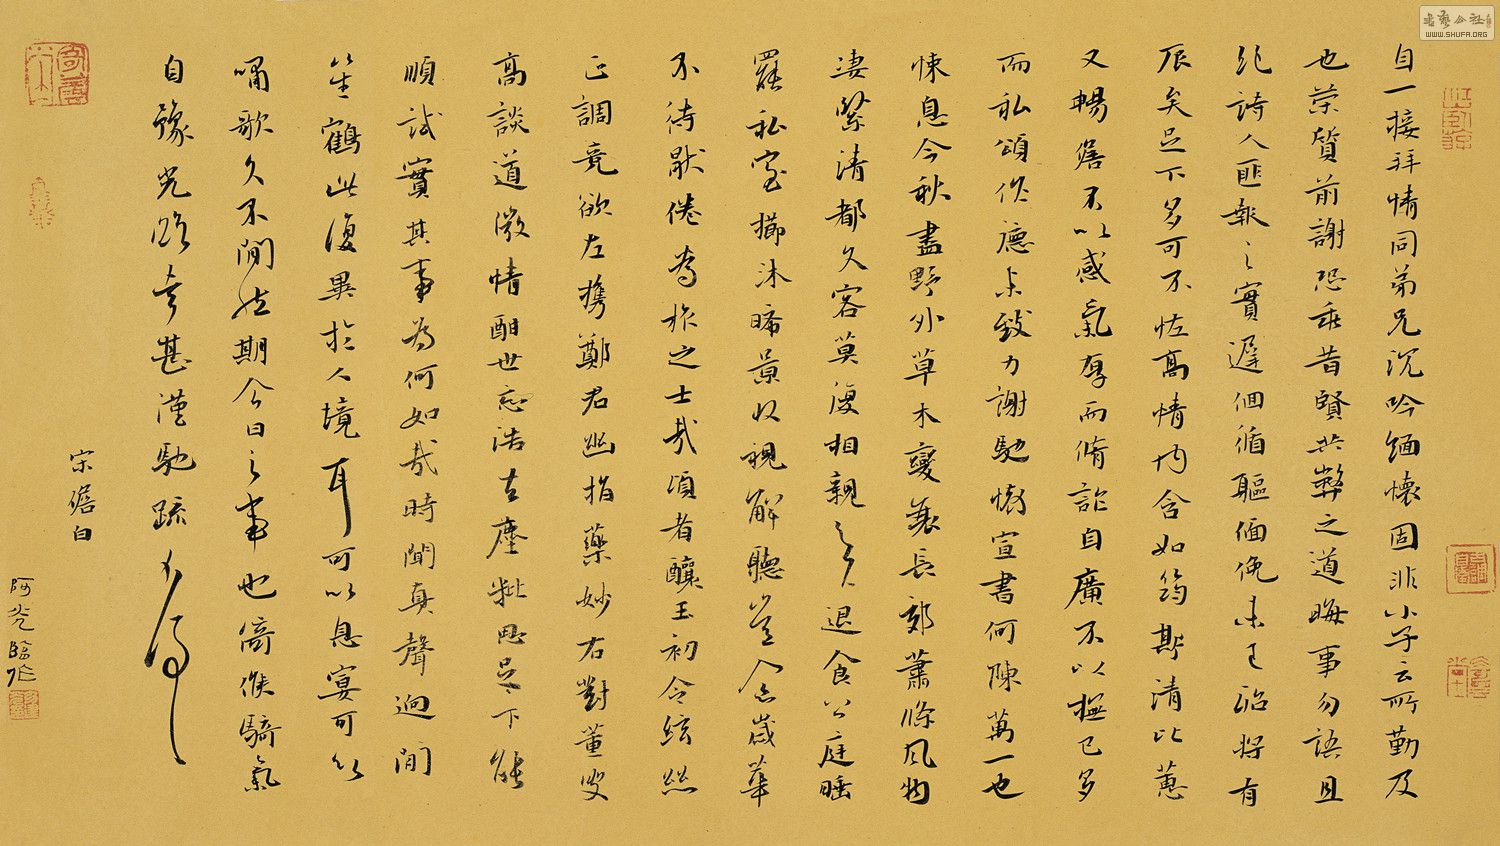 自一接拜情同弟兄沉吟缅懷固非小子云所勤及
也蒙質前謝恐乖昔賢共弊之道晦事勿語且
詩人匪報之實遲佪循軀僶俛未見臨將有
辰矣足下多可不恡高情内含如筠斯清比蕙
又暢儋不以感氣厚而脩詑自廣不以撫已多
而私頌作德未致力謝馳懷宣書何陳萬一也
悚息今秋盡野外草木變衰長郊蕭條風物
淒緊清都久客莫復相親之退食公庭睡
罷私室櫛沐晞景收視解聽豈入歲華
不待歇倦為旅之士哉頃者釀玉初合絃絲
正調竟欲左攜鄭君幽指藥妙右對董叟
高談道微情酣世忘浩古塵粃思足下能
順試實其事為何如哉時聞真聲迥聞
笙鶴此復異於人境耳可以息宴可以
嘯歌久不聞於期今日之事也倚候騎氣
自豫光臨幸甚謹馳疏不具
宋儋白
阿光臨作
書藝公社
WWW.SHUFA.ORG